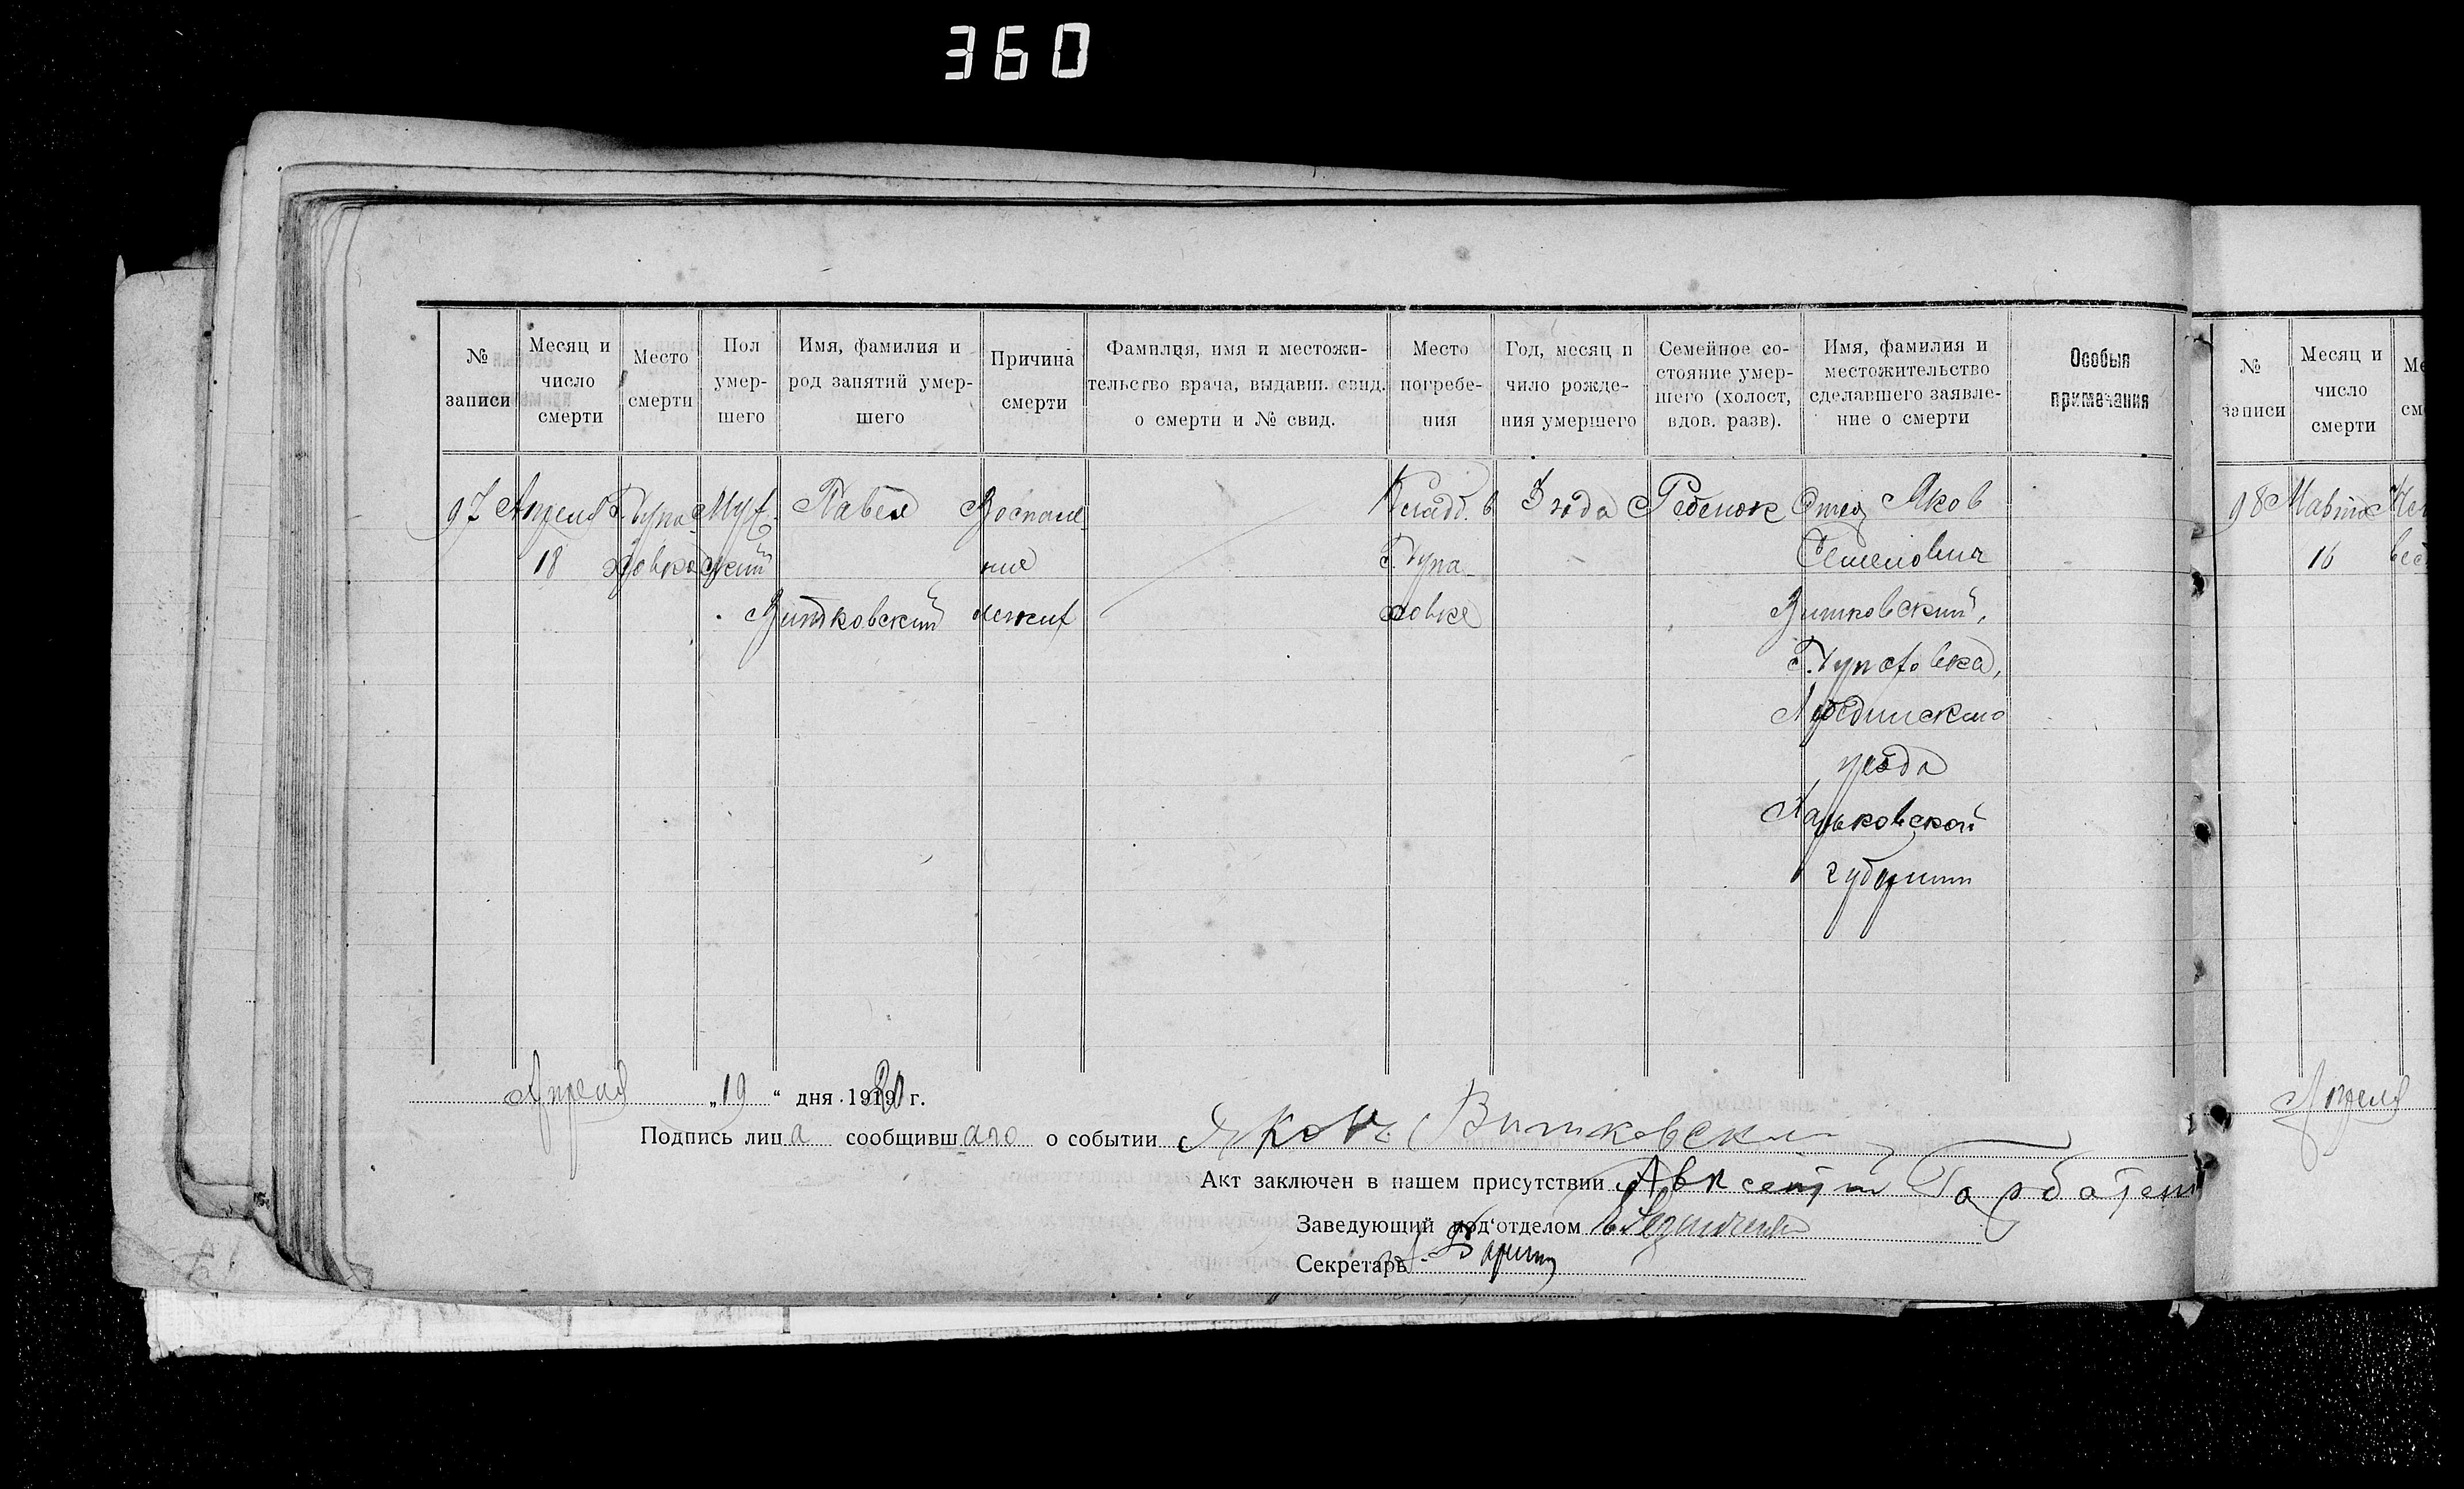 360
№ записи
Месяц и число смерти
Место смерти
Пол умершего
Имя, фамилия и род занятий умершего
Причина смерти
Фамилия, имя и местожительство врача, выдавш. свид. о смерти и № свид.
Место погребения
Год, месяц и чило рождения умершего
Семейное состояние умершего (холост, вдов. разв).
Имя, фамилия и местожительство сделавшего заявление о смерти
Особыя примечания
97
Апреля
18
Муж
ский
Павел
Витковский
Воспале
ние
легких
Кладб. в
3 года
Ребенок
Отец Яков
Семенович
Витковский,
уезда
Харьковской
губернии
Апреля „19“ дня 1920 г.
Подпись лица сообщившаго о событии Яковъ Витковский
Акт заключен в нашем присутствии Авксентий
Заведующий под'отделом
Секретарь
№ записи
Месяц и число смерти
Ме
см
98
16
Апреля